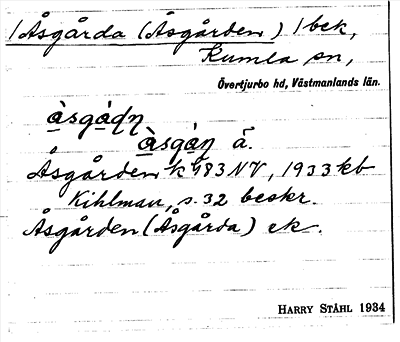 1 Åsgårda (Åsgården) 1 bek,
Kumla sn,
Övertjurbo hd, Västmanlands län.
àsgàdn
àsgàn ä.
Åsgården k 983 NV, 1933 kb
Kihlman, s. 32 beskr.
Åsgården (Åsgårda) ek.
HARRY STÅHL 1934